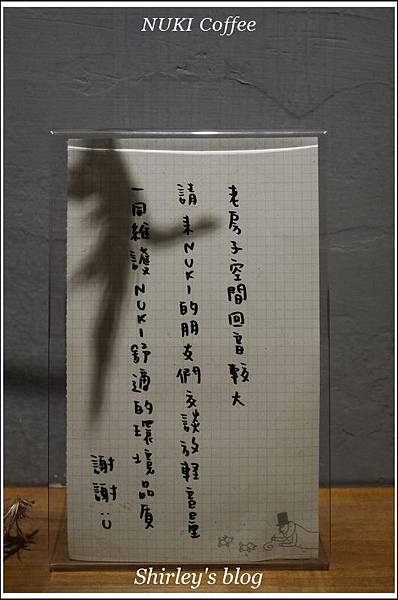 NUKI Coffee
老房子空間回音較大
請來NUKI的朋友們交談放輕音量
一同維護NUKI舒適的環境品質
謝謝:U
Shirley's blog